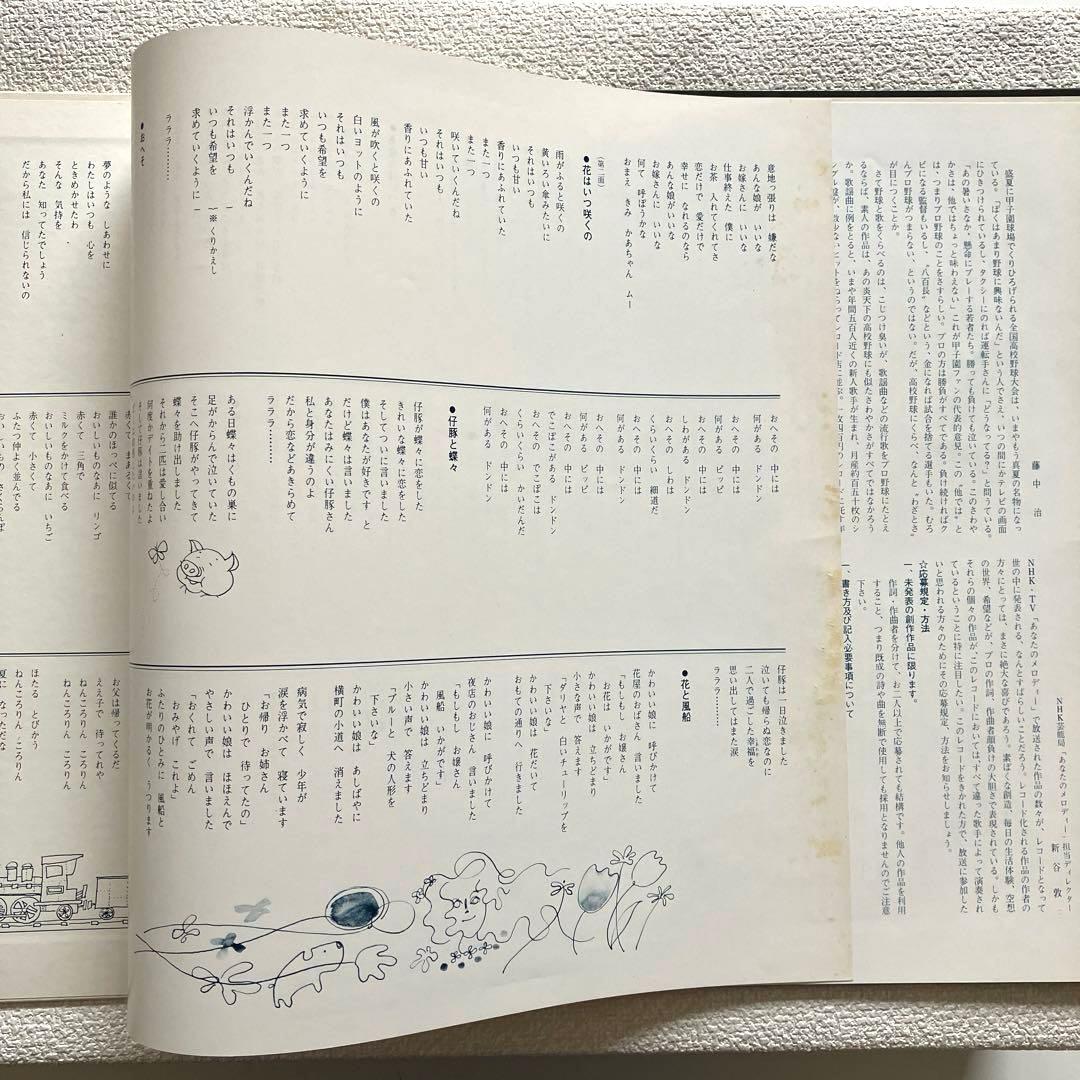 藤中治
盛夏に甲子園球場でくりひろげられる全国高校野球大会は、いまやもう真夏の名物になっ
ている。「ぼくはあまり野球に興味ないんだ」という人でさえ、いつの間にかテレビの画面
にひきつけられているし、タクシーにのれば運転手さんに「どうなってる?」と問うている。
「あの暑いさなか、懸命にプレーする若者たち。勝っても負けても泣いている。このさわや
かさは、他ではちょっと味わえない」これが甲子園ファンの代表的意見。この〝他では〟と
は、つまりプロ野球のことをさすらしい。プロの方は勝負がすべてである。負け続ければク
ビになる監督もいるし、〝八百長〟などという、金になれば試合を捨てる選手もいた。むろ
んプロ野球がつまらない、というのではない。だが、高校野球にくらべ、なんと〝わざとさ〟
が目につくことか。
さて野球と歌をくらべるのは、こじつけ臭いが、歌謡曲などの流行歌をプロ野球にたとえ
るならば、素人の作品は、あの炎天下の高校野球にも似たさわやかさがすべてではなかろう
か。歌謡曲に例をとると、いまや年間五百人近くの新人歌手が生まれ、月産約百五十枚のシ
NHK芸能局「あなたのメロディー」担当ディレクター
新谷敦
NHK・TV「あなたのメロディー」で放送された作品の数々が、レコードとなって
世の中に発表される、なんとすばらしいことだろう。レコード化される作品の作者の
方々にとっては、まさに絶大な喜びであろう。素ぼくな創造、毎日の生活体験、空想
の世界、希望などが、プロの作詞、作曲者顔負けの大胆さで表現されている。しかも
それらの個々の作品が、このレコードにおいては、すべて違った歌手によって演奏され
ているということに特に注目したい。このレコードをきかれた方で、放送に参加した
いと思われる方々のためにその応募規定、方法をお知らせしましょう。
☆応募規定・方法
一、未発表の創作作品に限ります。
作詞・作曲者を分けて、お二人以上で応募されても結構です。他人の作品を利用
すること、つまり既成の詩や曲を無断で使用しても採用となりませんのでご注意
下さい。
一、書き方及び記入必要事項について
意地っ張りは 嫌だな
あんな娘が いいな
お嫁さんに いいな
仕事終えた 僕に
お茶 入れてくれてさ
恋だけで 愛だけで
幸せに なれるのなら
あんな娘がいいな
お嫁さんに いいな
何て 呼ぼうかな
おまえ きみ かあちゃん ムー
(第二面)
●花はいつ咲くの
雨がふると咲くの
黄いろい傘みたいに
それはいつも
いつも甘い
香りにあふれていた
また一つ
また一つ
咲いていくんだね
それはいつも
いつも甘い
香りにあふれていた
風が吹くと咲くの
白いヨットのように
それはいつも
いつも希望を
求めていくように
また一つ
また一つ
浮かんでいくんだね
それはいつも
いつも希望を
求めていくように
※くりかえし
ラララ………
●おへそ
おへその 中には
何がある ドンドン
おへその 中には
何がある ピッピ
おへその しわは
しわがある ドンドン
くらいくらい 細道だ
おへその 中には
何がある ドンドン
おへその 中には
何がある ピッピ
おへその 中には
でこぼこがある ドンドン
おへその でこぼこは
くらいくらい かいだんだ
おへその 中には
何がある ドンドン
●仔豚と蝶々
仔豚が蝶々に恋をした
きれいな蝶々に恋をした
そしてついに言いました
僕はあなたが好きです と
だけど蝶々は言いました
あなたはみにくい仔豚さん
私と身分が違うのよ
だから恋などあきらめて
ラララ………
ある日蝶々はくもの巣に
足がからんで泣いていた
そこへ仔豚がやってきて
蝶々を助け出しました
それから二匹は愛し合い
何度かデイトを重ねたよ
仔豚は一日泣きました
泣いても帰らぬ恋なのに
二人で過ごした幸福を
思い出してはまた涙
ラララ………
●花と風船
かわいい娘に 呼びかけて
花屋のおばさん 言いました
「もしもし お嬢さん
お花は いかがです」
かわいい娘は 立ちどまり
小さな声で 答えます
「ダリヤと 白いチューリップを
下さいな」
かわいい娘は 花だいて
おもての通りへ 行きました
かわいい娘に 呼びかけて
夜店のおじさん 言いました
「もしもし お嬢さん
風船 いかがです」
かわいい娘は 立ちどまり
小さい声で 答えます
「ブルーと 犬の人形を
下さいな」
かわいい娘は あしばやに
横町の小道へ 消えました
病気で寂しく 少年が
涙を浮かべて 寝ています
「お帰り お姉さん
ひとりで 待ってたの」
かわいい娘は ほほえんで
やさしい声で 言いました
「おくれて ごめん
おみやげ これよ」
ふたりのひとみに 風船と
お花が明かるく うつります
夢のような しあわせに
わたしはいつも 心を
ときめかせたわ
そんな 気持を
あなた 知ってたでしょう
だから私には 信じられないの
誰かのほっぺに 似てる
おいしいものなあに リンゴ
赤くて 三角で
ミルクをかけて食べる
おいしいものなあに いちご
赤くて 小さくて
ふたつ仲よく並んでる
お父は帰ってくるだ
ええ子で 待ってれや
ねんころりん ころりん
ねんころりん ころりん
ほたる とびかう